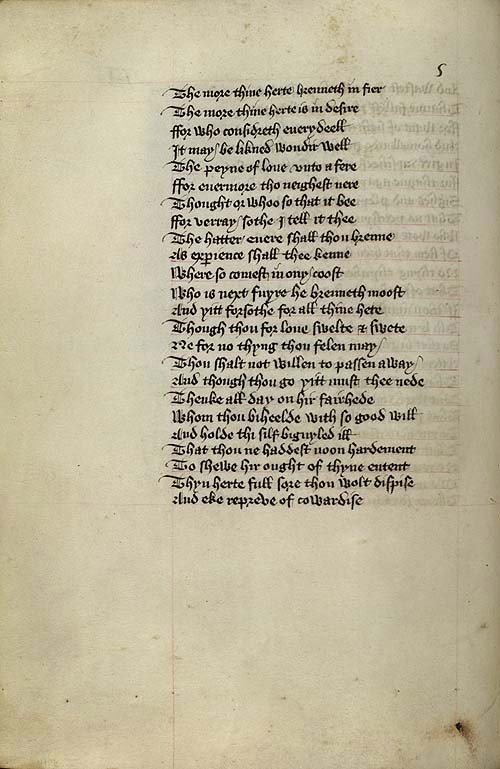 5
The more thine herte brenneth in fier
The more thine herte is in desire
ffor who considreth euerydeell
It may be likned wondir well
The peyne of loue vnto a fere
ffor euermore tho neighest nere
Thought or whoo so that it bee
ffor verray sothe I tell it thee
The hatter euere shall thou brenne
As experience shall thee kenne
Where so comest in ony coost
Who is next fuyre he brenneth moost
And yitt forsothe for all thine hete
Though thou for loue swelte & swete
Ne for no thyng thou felen may
Thou shalt not willen to passen away
And though thou go yitt must thee nede
Thenke all day on hir fairhede
Whom thou biheelde with so good will
And holde thi silf biguyled ill
That thou ne haddest noon hardement
To shewe hir ought of thyne entent
Thyn herte full sore thou wolt dispise
And eke repreve of cowardise